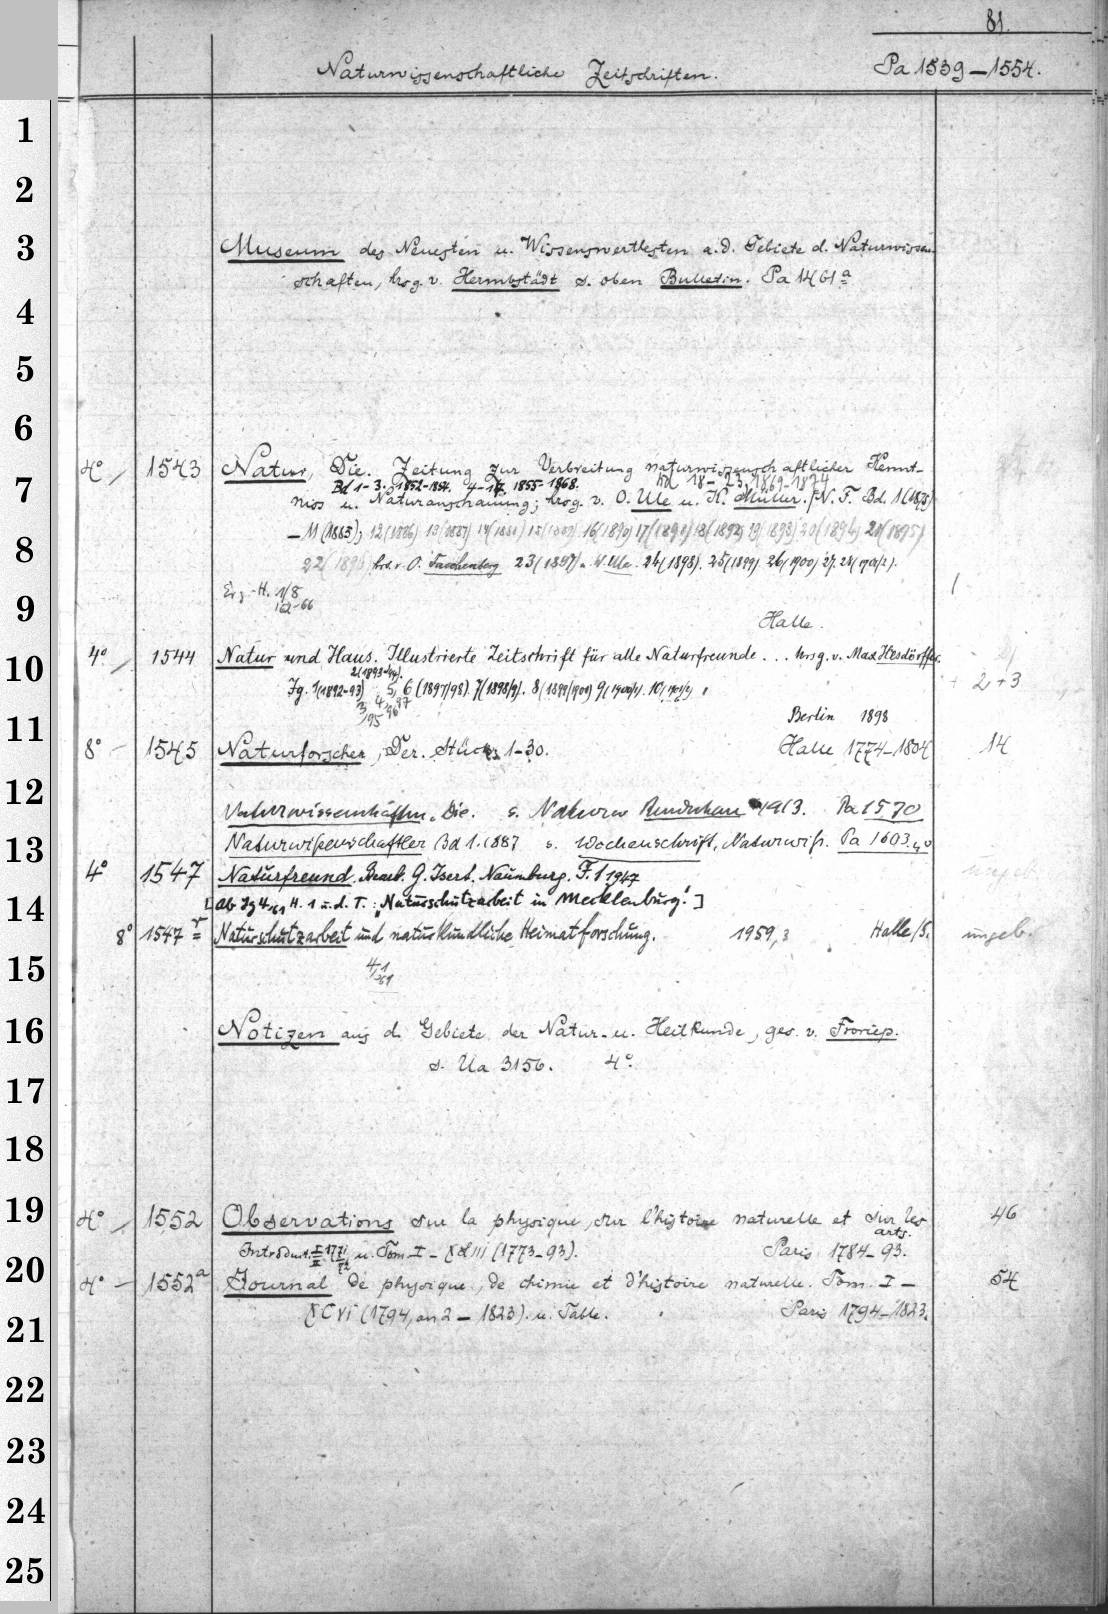 81.
Naturwissenschaftliche Zeitschriften. Pa 1539–1554.
1
2
3 Museum des Neuesten u. Wissenswertesten a. d. Gebiete d. Naturwissen-
schaften, hrsg. v. Hermbstädt s. oben Bulletin. Pa 1461a
4
5
6
4° 1543 Natur, Die. Zeitung zur Verbreitung naturwissenschaftlicher Kennt-
7 Bd 1–3. 1852–1854. 4–17, 1855–1868. Bd 18–23, 1869–1874
niss u. Naturanschauung; hrsg. v. O. Ule u. K. Müller. N. F. Bd. 1 (1875)
8 – 11 (1885); 12 (1886) 13 (1887) 14 (1888) 15 (1889) 16 (1890) 17 (1891) 18 (1892) 19 (1893) 20 (1894) 21 (1895)
22 (1896) hrsg. v. O. Taschenberg 23 (1897) u. W. Ule. 24 (1898). 25 (1899) 26 (1900) 27. 28 (1901/2).
9 Erg.-H. 1/8 1
162-66
Halle.
4° 1544 10 Natur und Haus. Illustrierte Zeitschrift für alle Naturfreunde ... hrsg. v. Max Hesdörffer.
2 (1893-94).
Jg. 1 (1892-93) 5, 6 (1897/98). 7 (1898/9). 8 (1899/1900) 9 (1900/1). 10 (1901/2) + 2+3
3, 4, 97
195 96
11 Berlin 1893
8° – 1545 Naturforscher, Der. Stück 1–30. Halle 1774–1804 14
12 Naturwissenschaften, Die. s. Naturw Rundschau 1913. Pa 1570
13 Naturwissenschaftler Bd 1. 1887 s. Wochenschrift, Naturwiss. Pa 1603 4°
4° 1547 Naturfreund. Bearb. G. Isert. Naumburg. F. 1 1947 ungeb.
14 [Ab Jg 4, 1961 H. 1 u. d. T.: "Naturschutzarbeit in Mecklenburg"]
8° 1547 r Naturschutzarbeit und naturkundliche Heimatforschung. 1959, 3 Halle/S. ungeb.
15 4,1
1961
16 Notizen aus d. Gebiete der Natur- u. Heilkunde, ges. v. Froriep.
s. Ua 3156. 4°.
17
18
19 4° 1552 Observations sur la physique, sur l'histoire naturelle et sur les 46
arts.
Introduct. I 1771 u. Tom. I – XLIII (1773–93). Paris 1784–93.
II 72
20 4° – 1552a Journal de physique, de chimie et d'histoire naturelle. Tom. I – 54
21 XCVI (1794, an 2 – 1823). u. Table. Paris 1794–1823.
22
23
24
25